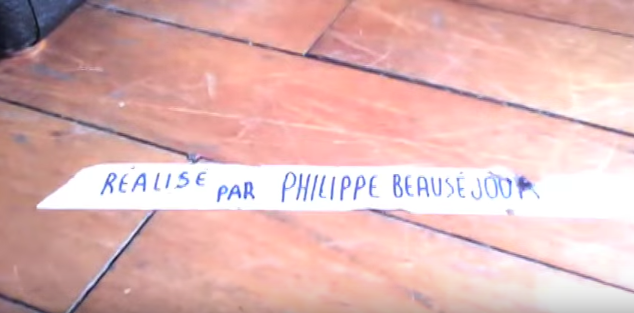 RÉALISE PAR PHILIPPE BEAUSÉJOUR